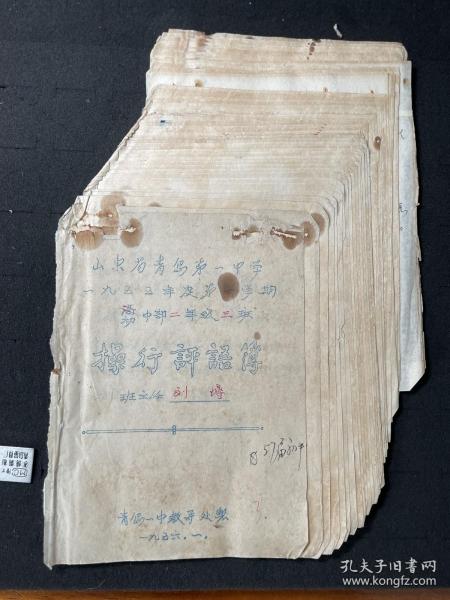 山东省青岛第一中学
一九五五年度第 学期
中部二年级三班
操行評語簿
班主任 刘
57届初
青岛一中教导处製
一九五六.一.
孔夫子旧书网
www.kongfz.com